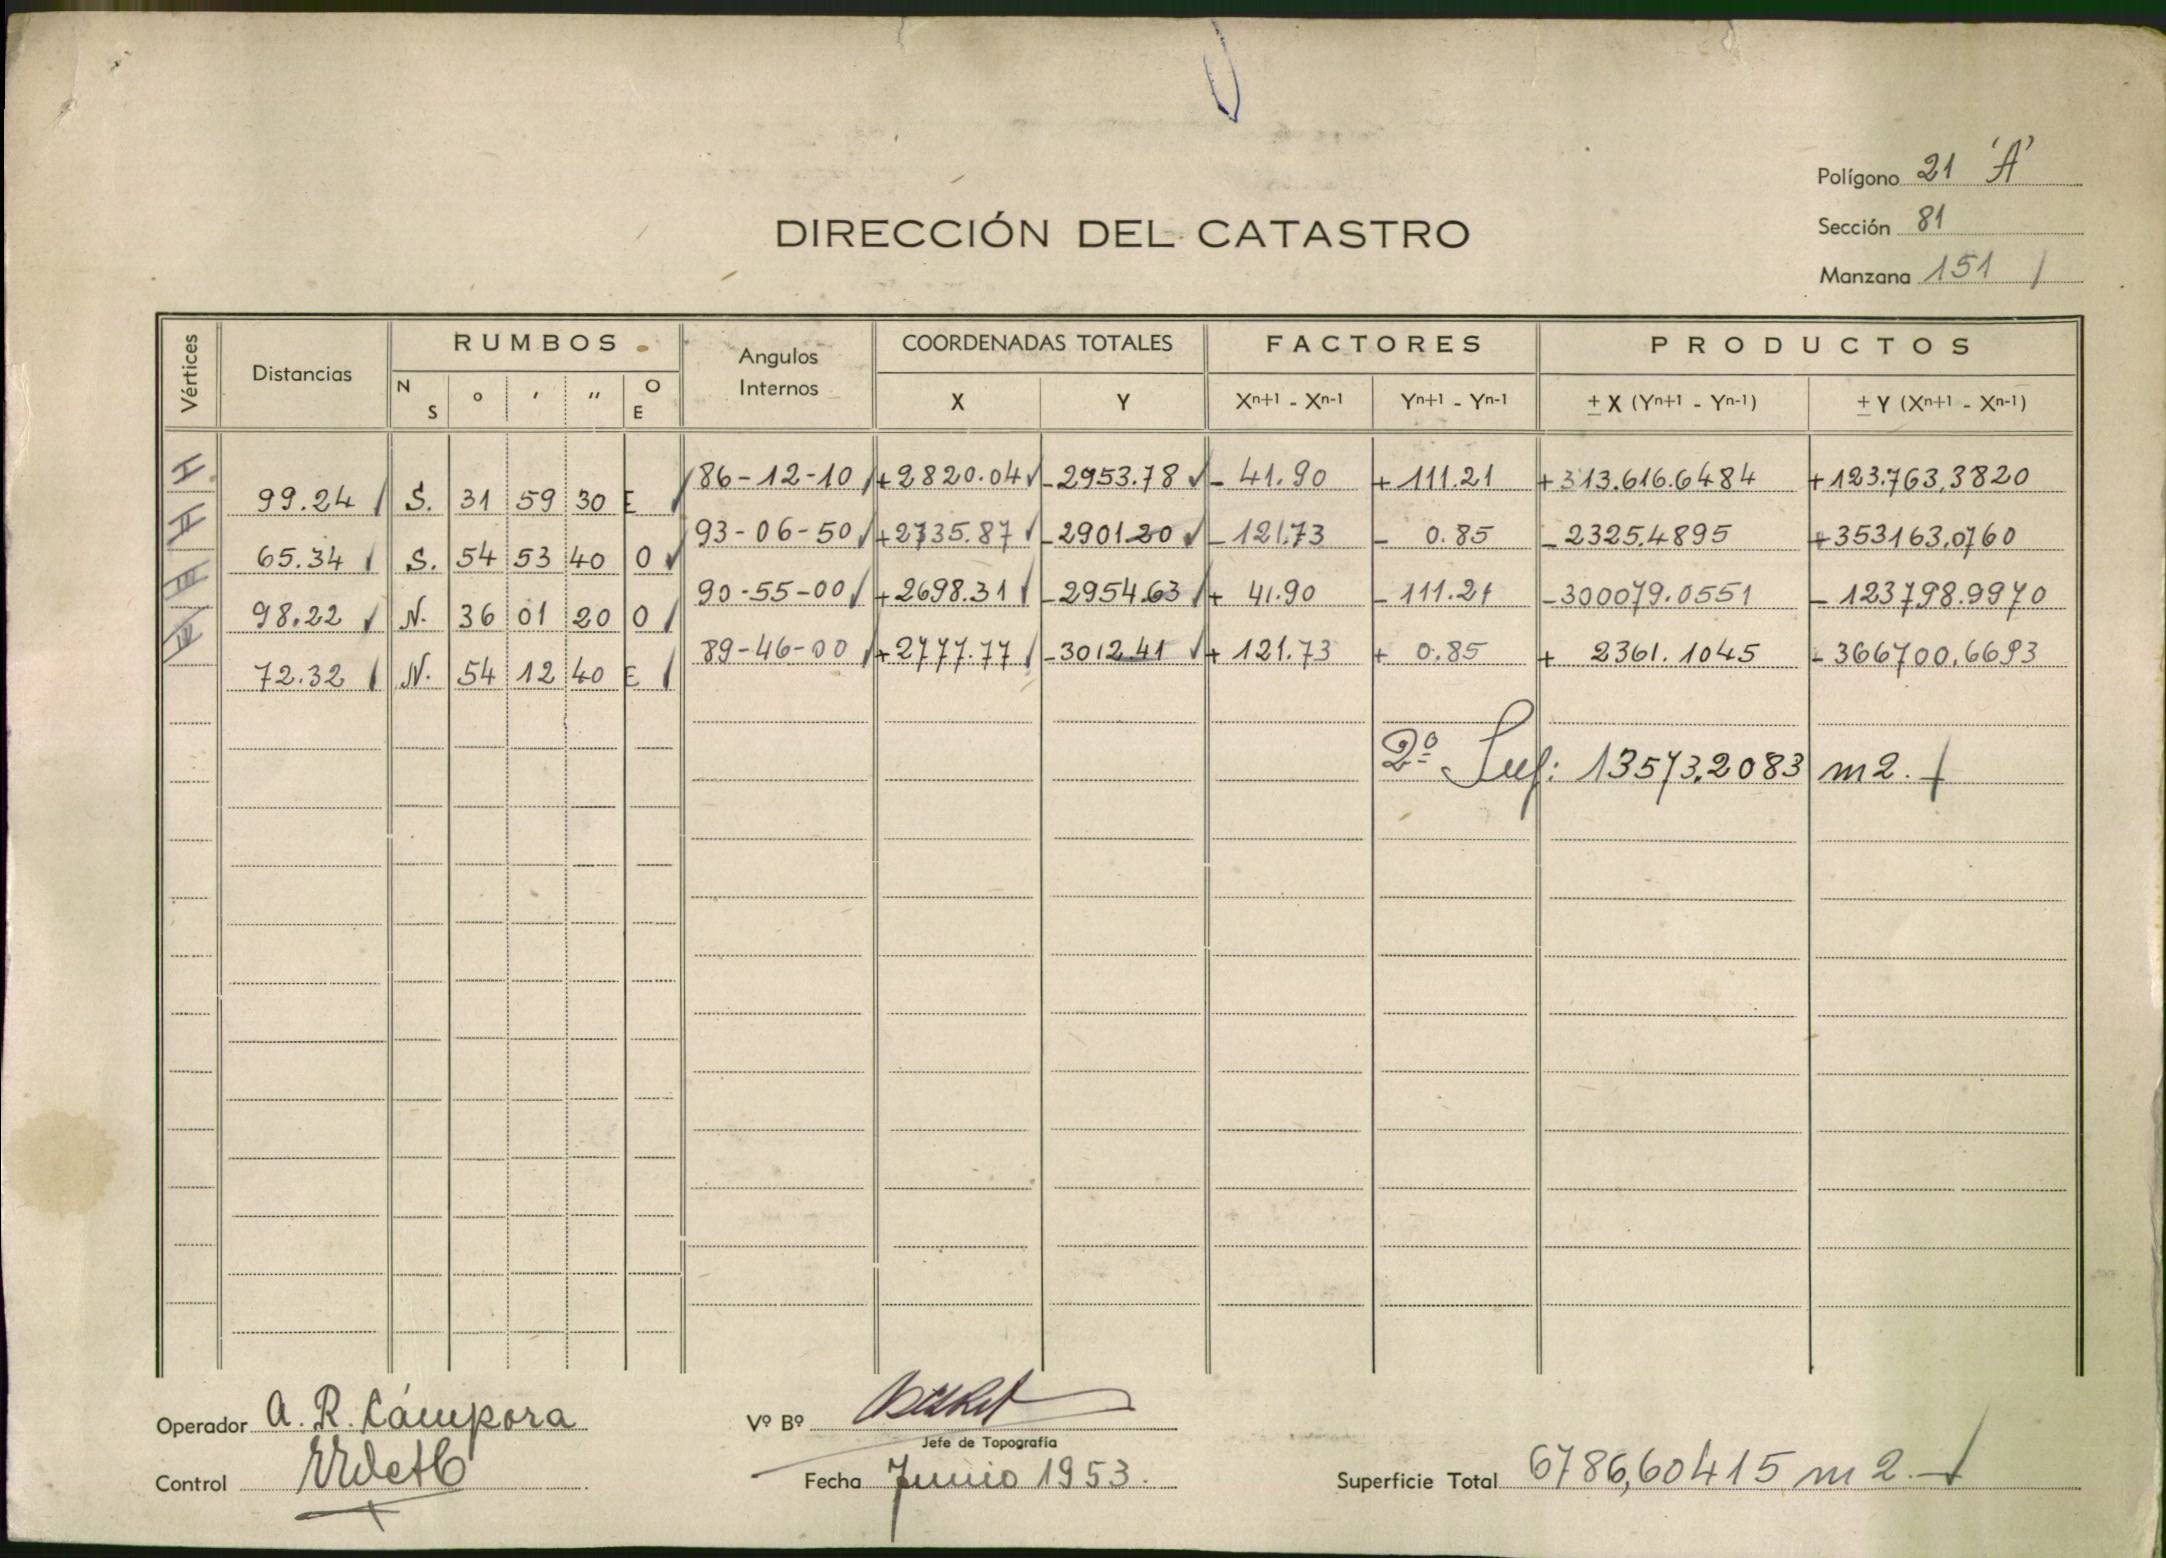 Polígono 21 'A'
DIRECCIÓN DEL CATASTRO
Sección 81
Manzana 151
Vértices Distancias RUMBOS Angulos Internos COORDENADAS TOTALES FACTORES PRODUCTOS
N S ° ' " O E X Y Xn+1 - Xn-1 Yn+1 - Yn-1 ± X (Yn+1 - Yn-1) ± Y (Xn+1 - Xn-1)
I 86-12-10 +2820.04 -2953.78 - 41.90 + 111.21 +313.616.6484 +123.763,3820
99.24 S. 31 59 30 E
II 93-06-50 +2735.87 -2901.20 - 121.73 - 0.85 -2325.4895 +353163,0760
65.34 S. 54 53 40 O
III 90-55-00 +2698.31 -2954.63 + 41.90 - 111.21 -300079.0551 - 123798.9970
98.22 N. 36 01 20 O
IV 89-46-00 +2777.77 -3012.41 + 121.73 + 0.85 + 2361.1045 - 366700,6693
72.32 N. 54 12 40 E
2º Sup: 13573,2083 m2.
Operador A. R. Cámpora Vº Bº
Jefe de Topografía
Control Fecha Junio 1953. Superficie Total 6786,60415 m2.